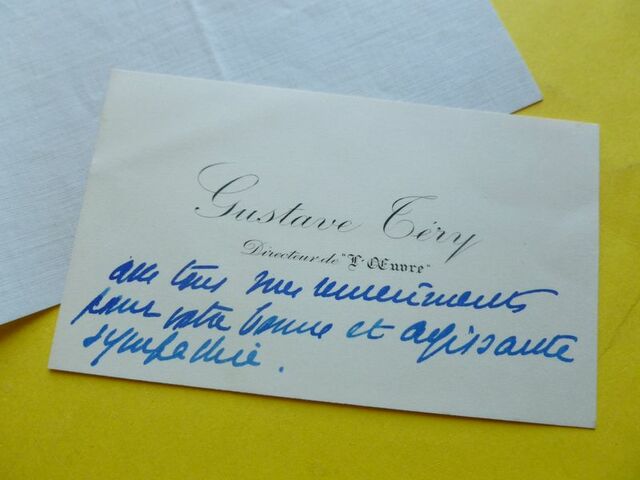 Gustave Téry
Directeur de "L'Œuvre"
avec tous mes remerciments
pour votre bonne et agissante
sympathie.